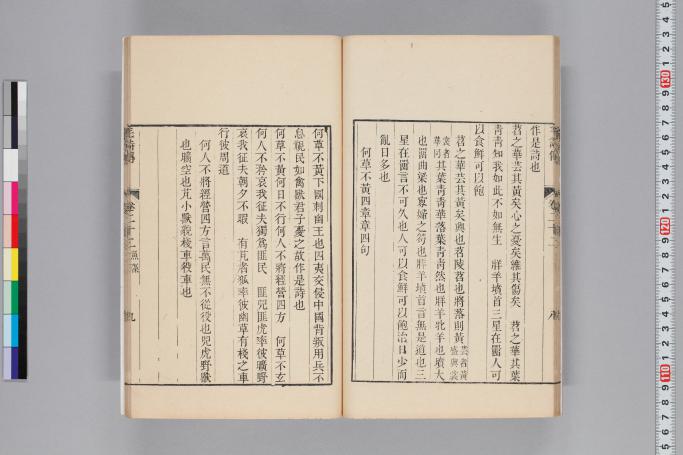 作是詩也
苕之華芸其黃矣心之憂矣維其傷矣　苕之華其葉
青青知我如此不如無生　牂羊墳首三星在罶人可
以食鮮可以飽
苕之華芸其黃矣興也苕陵苕也將落則黃
其葉青青華落葉青青然也牂羊牝羊也墳大
也罶曲梁也寡婦之笱也牂羊墳首言無是道也三
星在罶言不可久也人可以食鮮可以飽治日少而
亂日多也
何草不黃四章章四句
何草不黃下國刺幽王也四夷交侵中國背叛用兵不
息視民如禽獸君子憂之故作是詩也
何草不黃何日不行何人不將經營四方　何草不玄
何人不矜哀我征夫獨為匪民　匪兕匪虎率彼曠野
哀我征夫朝夕不暇　有芃者狐率彼幽草有棧之車
行彼周道
何人不將經營四方言萬民無不從役也兕虎野獸
也曠空也芃小獸貌棧車役車也